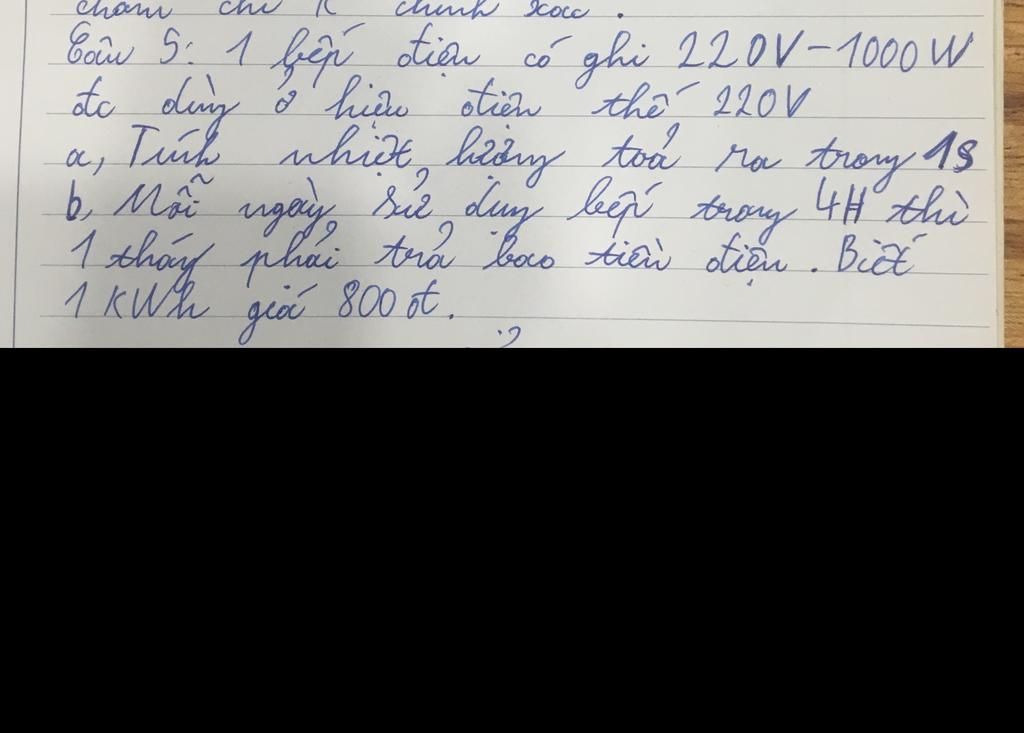 chăm chỉ K chính xác.
Câu 5: 1 bếp điện có ghi 220V-1000W
đc dùng ở hiệu điện thế 220V
a, Tính nhiệt lượng toả ra trong 1s
b, Mỗi ngày sử dụng bếp trong 4H thì
1 tháng phải trả bao tiền điện. Biết
1 KWh giá 800 đ.